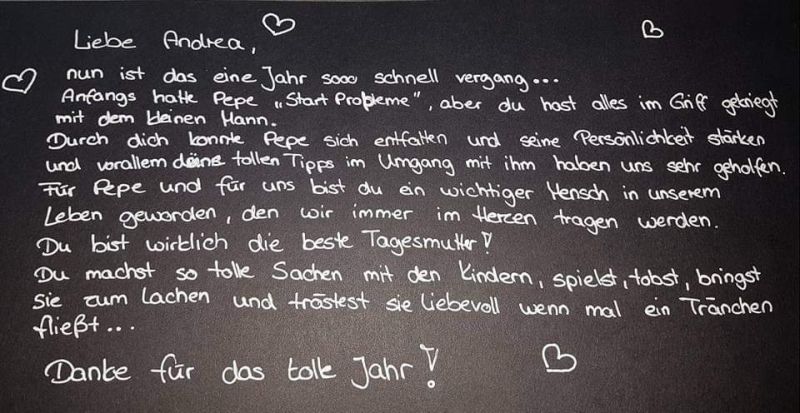 Liebe Andrea,
nun ist das eine Jahr sooo schnell vergang...
Anfangs hatte Pepe „Start Probleme", aber du hast alles im Griff gekriegt
mit dem kleinen Mann.
Durch dich konnte Pepe sich entfalten und seine Persönlichkeit stärken
und vorallem deine tollen Tipps im Umgang mit ihm haben uns sehr geholfen.
Für Pepe und für uns bist du ein wichtiger Mensch in unserem
Leben geworden, den wir immer im Herzen tragen werden.
Du bist wirklich die beste Tagesmutter!
Du machst so tolle Sachen mit den Kindern, spielst, tobst, bringst
Sie zum Lachen und tröstest sie Liebevoll wenn mal ein Tränchen
fließt...
Danke für das tolle Jahr!